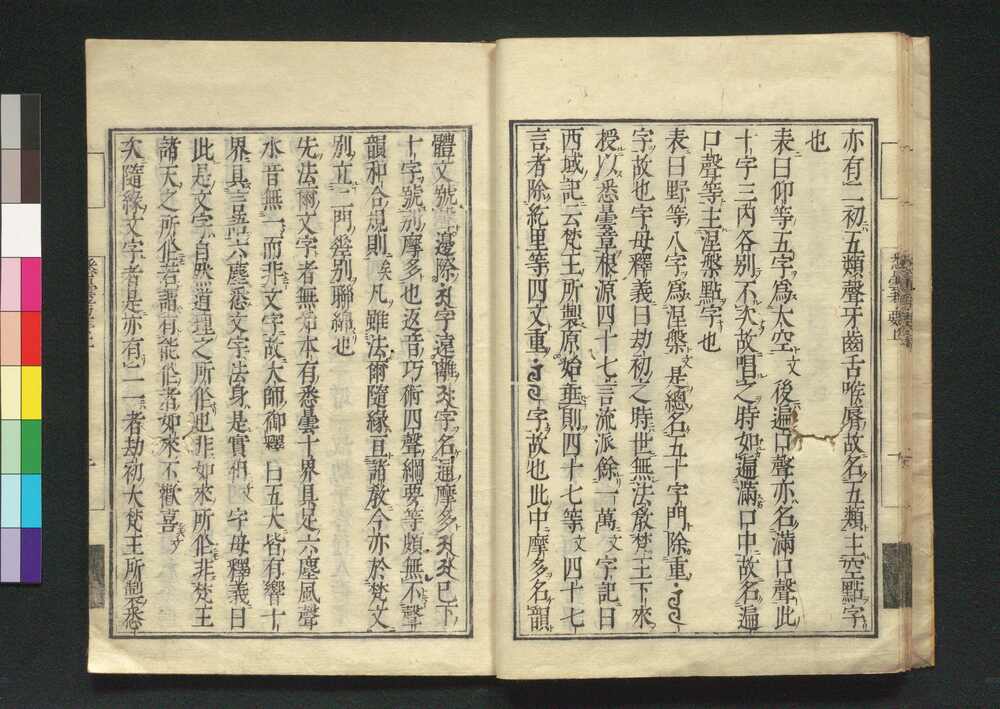 亦有二初五類聲牙齒舌喉脣故名五類土空點字
也
表曰仰等五字爲大空文後遍口聲亦名滿口聲此
十字三內各別不次故唱之時如遍滿口中故名遍
口聲等主涅槃點字也
表曰野等八字爲涅槃是總名五十字門除重
字故也字母釋義曰劫初之時世無法教梵王下來
授以悉曇章根源四十七言流派餘一萬文字記曰
西域記云梵王所製原始垂則四十七等文四十七
言者除紇里等四文重字故也此中摩多名韻
體文號聲邊際字遠離字名通摩多已下
十字號別摩多也返音巧術四聲綱要等頗無不聲
韻和合規則矣凡雖法爾隨緣亘諸教今亦於梵文
別立二門鏗別聯綿也
先法爾文字者無始本有悉曇十界具足六塵風聲
水音無一而非文字故大師御釋曰五大皆有響十
界具言語六塵悉文字法身是實相文字母釋義曰
此是文字自然道理之所作也非如來所作非梵王
諸天之所作若謂有能作者如來不歡喜
次隨緣文字者是亦有二一者劫初大梵王所製悉